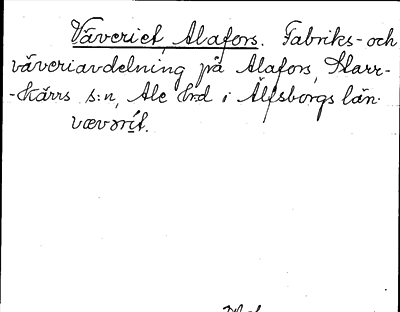 Väveriet, Alafors. Fabriks- och
väveriavdelning på Alafors, Starr-
-kärrs s:n, Ale hrd i Älfsborgs län.
vævərít.